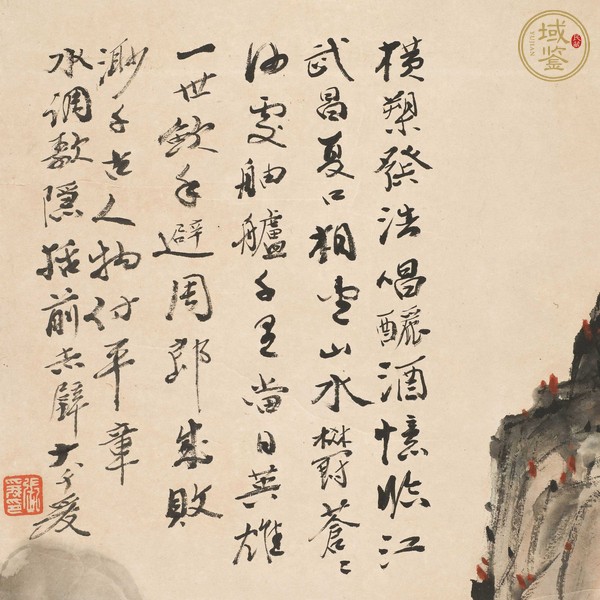 横槊發浩唱釃酒憶臨江
武昌夏口相望山水欝蒼〻
何處舳艫千里當日英雄
一世斂手避周郎成敗
渺千古人物付平章
水調歌隱括前赤壁大千爰
域鉴
YUJIAN